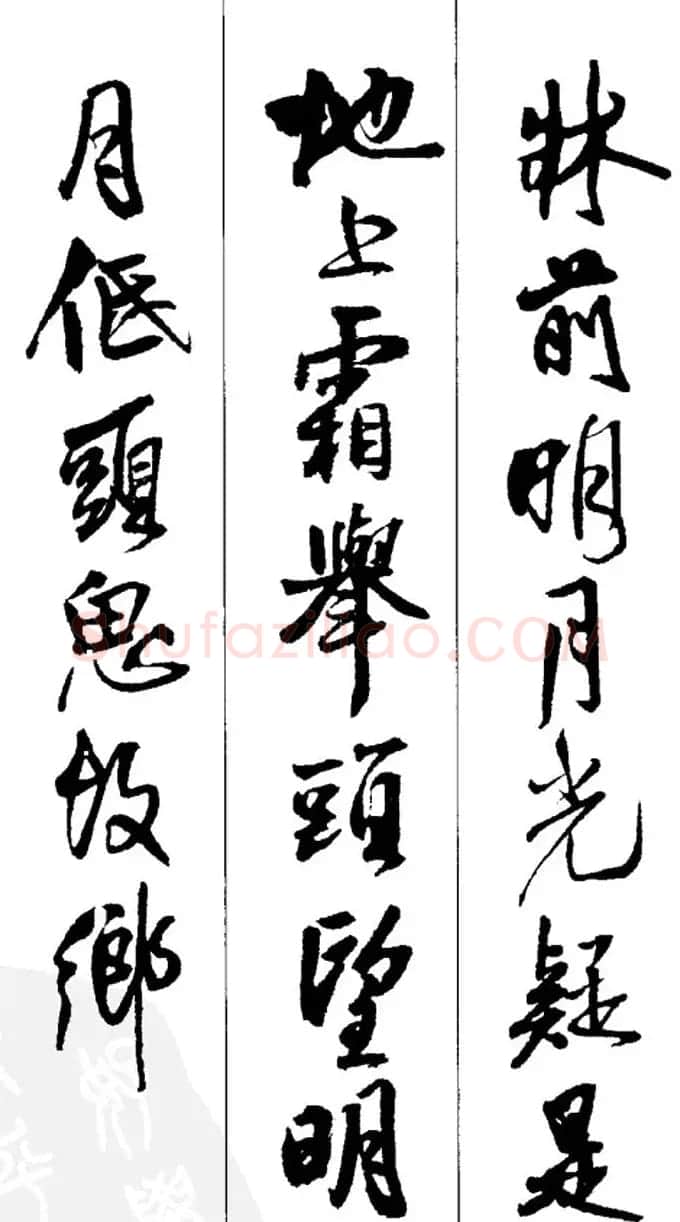 牀前明月光疑是
地上霜舉頭望明
月低頭思故鄉
Shufaziliao.COM